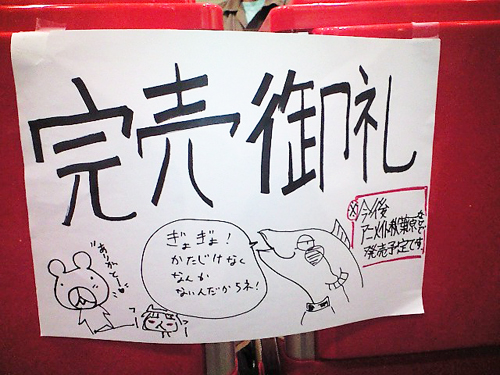 完売御礼
※今後
アニメイト秋葉原などで
発売予定です
ぎょぎょ!
かたじけなく
なんか
ないんだからネ!
ありがとー♥